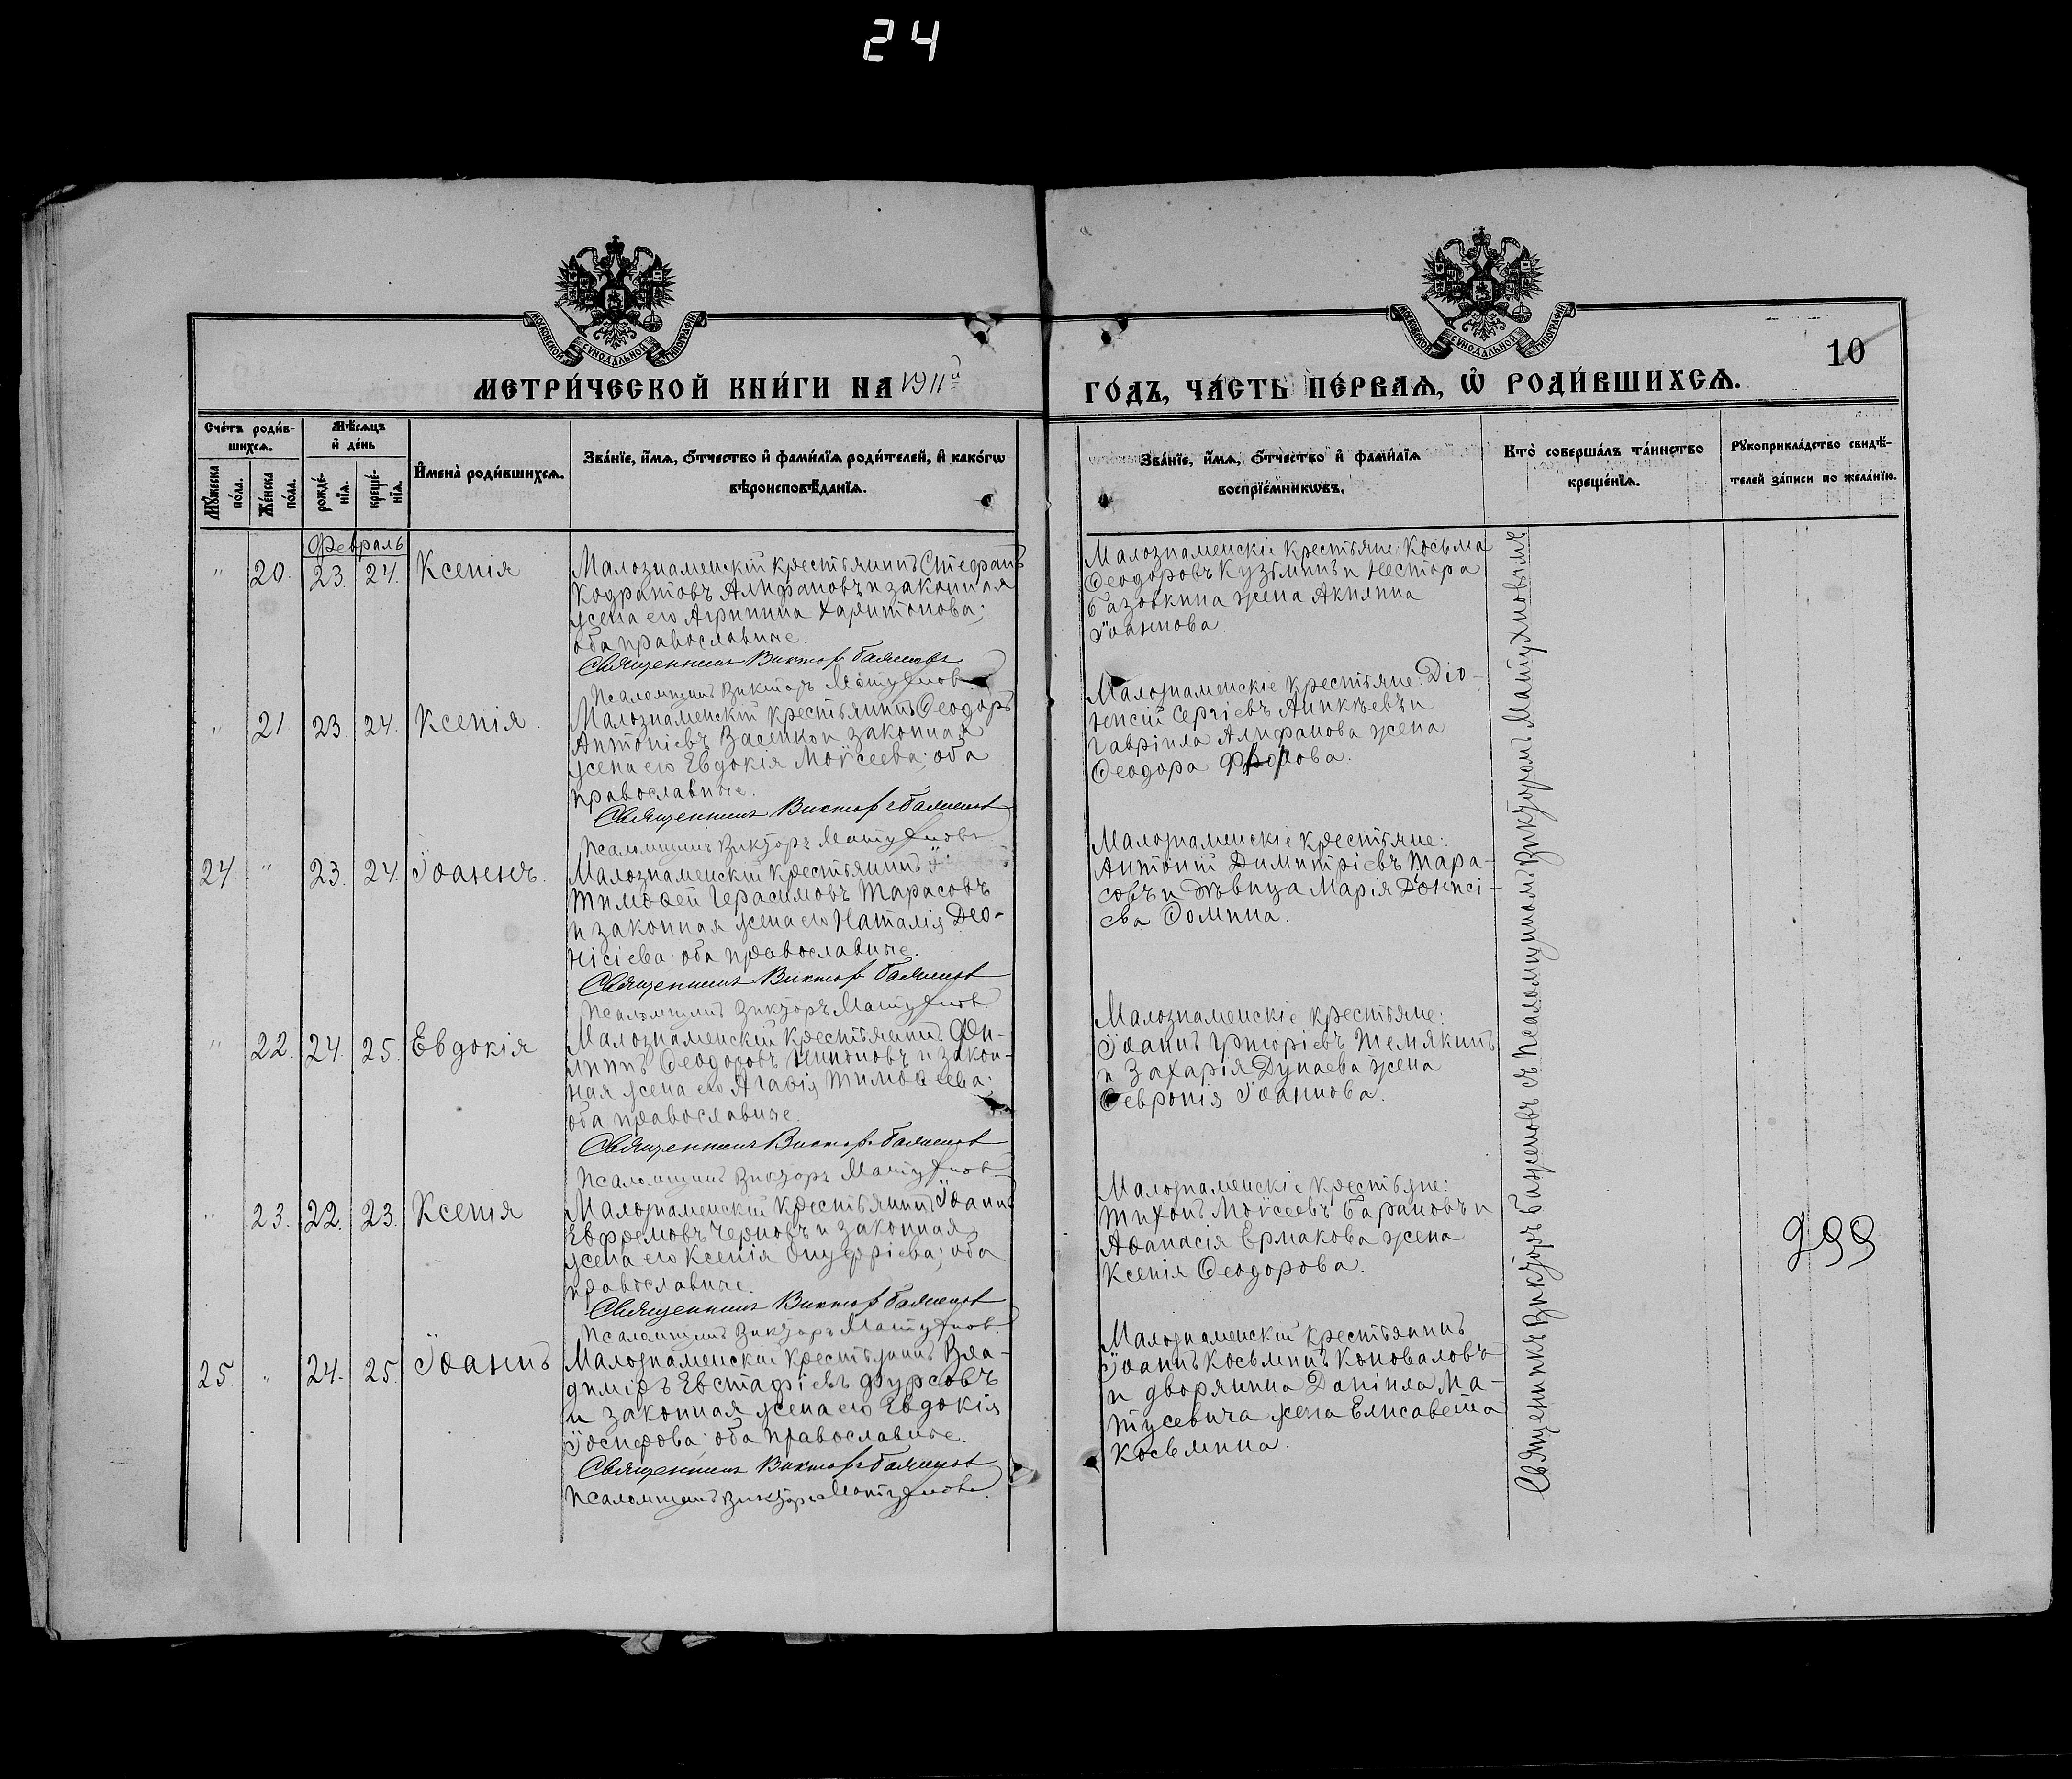 24
МОСКОВСКОЙ СѴНОДАЛЬНОЙ ТИПОГРАФІИ
МОСКОВСКОЙ СѴНОДАЛЬНОЙ ТИПОГРАФІИ
10
МЕТРИ́ЧЕСКОЙ КНИ́ГИ НА 1911й
ГО́ДЪ, ЧА́СТЬ ПЕ́РВАѦ, Ѡ҆ РОДИ́ВШИХСѦ.
Сче́тъ роди́в-
шихсѧ.
Мꙋ́жеска по́ла.
Же́нска по́ла.
Мѣ́сѧцъ
и҆ де́нь
рожде́-
нїѧ.
креще́-
нїѧ.
И҆мена̀ роди́вшихсѧ.
Зва́нїе, и҆́мѧ, ѻ҆́тчество и҆ фами́лїѧ роди́телей, и҆ како́гѡ
вѣроисповѣ́данїѧ.
Зва́нїе, и҆́мѧ, ѻ҆́тчество и҆ фами́лїѧ
воспрїе́мникѡвъ.
Кто̀ соверша́лъ та́инство
креще́нїѧ.
Рꙋкоприкла́дство свидѣ́-
телей за́писи по жела́нїю.
Февраль
" 20. 23. 24. Ксенія
Малознаменскій крестьянинъ Стефанъ
Кодратовъ Алифановъ и законная
жена его Агрипина Харитонова;
оба православные.
Священникъ Виктор Баженовъ
Псаломщикъ Викторъ Матухнов
Малознаменскіе крестьяне: Косьма
Ѳеодоровъ Кузьминъ и Нестора
Базовкина жена Акилина
Іоаннова.
" 21. 23. 24. Ксенія.
Малознаменскій крестьянинъ Ѳеодоръ
Антоніевъ Васенко и законная
жена его Евдокія Моѵсеева; оба
православные.
Священникъ Виктор Баженов
Псаломщикъ Викторъ Матухновъ
Малознаменскіе крестьяне: Діо-
нисій Сергіевъ Аникѣевъ и
Гавріила Алифанова жена
Ѳеодора Фролова.
24. " 23. 24. Іоаннъ.
Малознаменскій крестьянинъ
Тимоѳей Герасимовъ Тарасовъ
и законная жена его Наталія Део-
нісіева; оба православные.
Священникъ Виктор Баженов
Псаломщикъ Викторъ Матухнов
Малознаменскіе крестьяне:
Антоній Димитріевъ Тара-
совъ и дѣвица Марія Діонисі-
ева Ѳомина.
" 22. 24. 25. Евдокія
Малознаменскій крестьянинъ Фи-
липпъ Ѳеодоровъ и закон-
ная жена его Агаѳія Тимоѳеева;
оба православные.
Священникъ Виктор Баженов
Псаломщикъ Викторъ Матухнов
Малознаменскіе крестьяне:
Іоаннъ Григоріевъ Темякинъ
и Захарія Дунаева жена
Ѳевронія Іоаннова.
" 23. 22. 23. Ксенія
Малознаменскій крестьянинъ Іоаннъ
Евфремовъ Черновъ и законная
жена его Ксенія Онуфріева; оба
православные.
Священникъ Виктор Баженов
Псаломщикъ Викторъ Матухнов
Малознаменскіе крестьяне:
Тихонъ Моѵсеевъ Барановъ и
Аѳанасія Ермакова жена
Ксенія Ѳеодорова.
25. " 24. 25. Іоаннъ
Малознаменскій крестьянинъ Вла-
димі́ръ Евстафіевъ Фурсовъ
и законная жена его Евдокія
Іосифова; оба православные.
Священникъ Виктор Баженов
Псаломщикъ Викторъ Матухновъ
Малознаменскій крестьянинъ
Іоаннъ Косьминъ Коноваловъ
и дворянина Даніила Ма-
тусевича жена Елисавета
Косьмина.
Священникъ Викторъ Баженовъ съ псаломщикомъ Викторомъ Матухновымъ